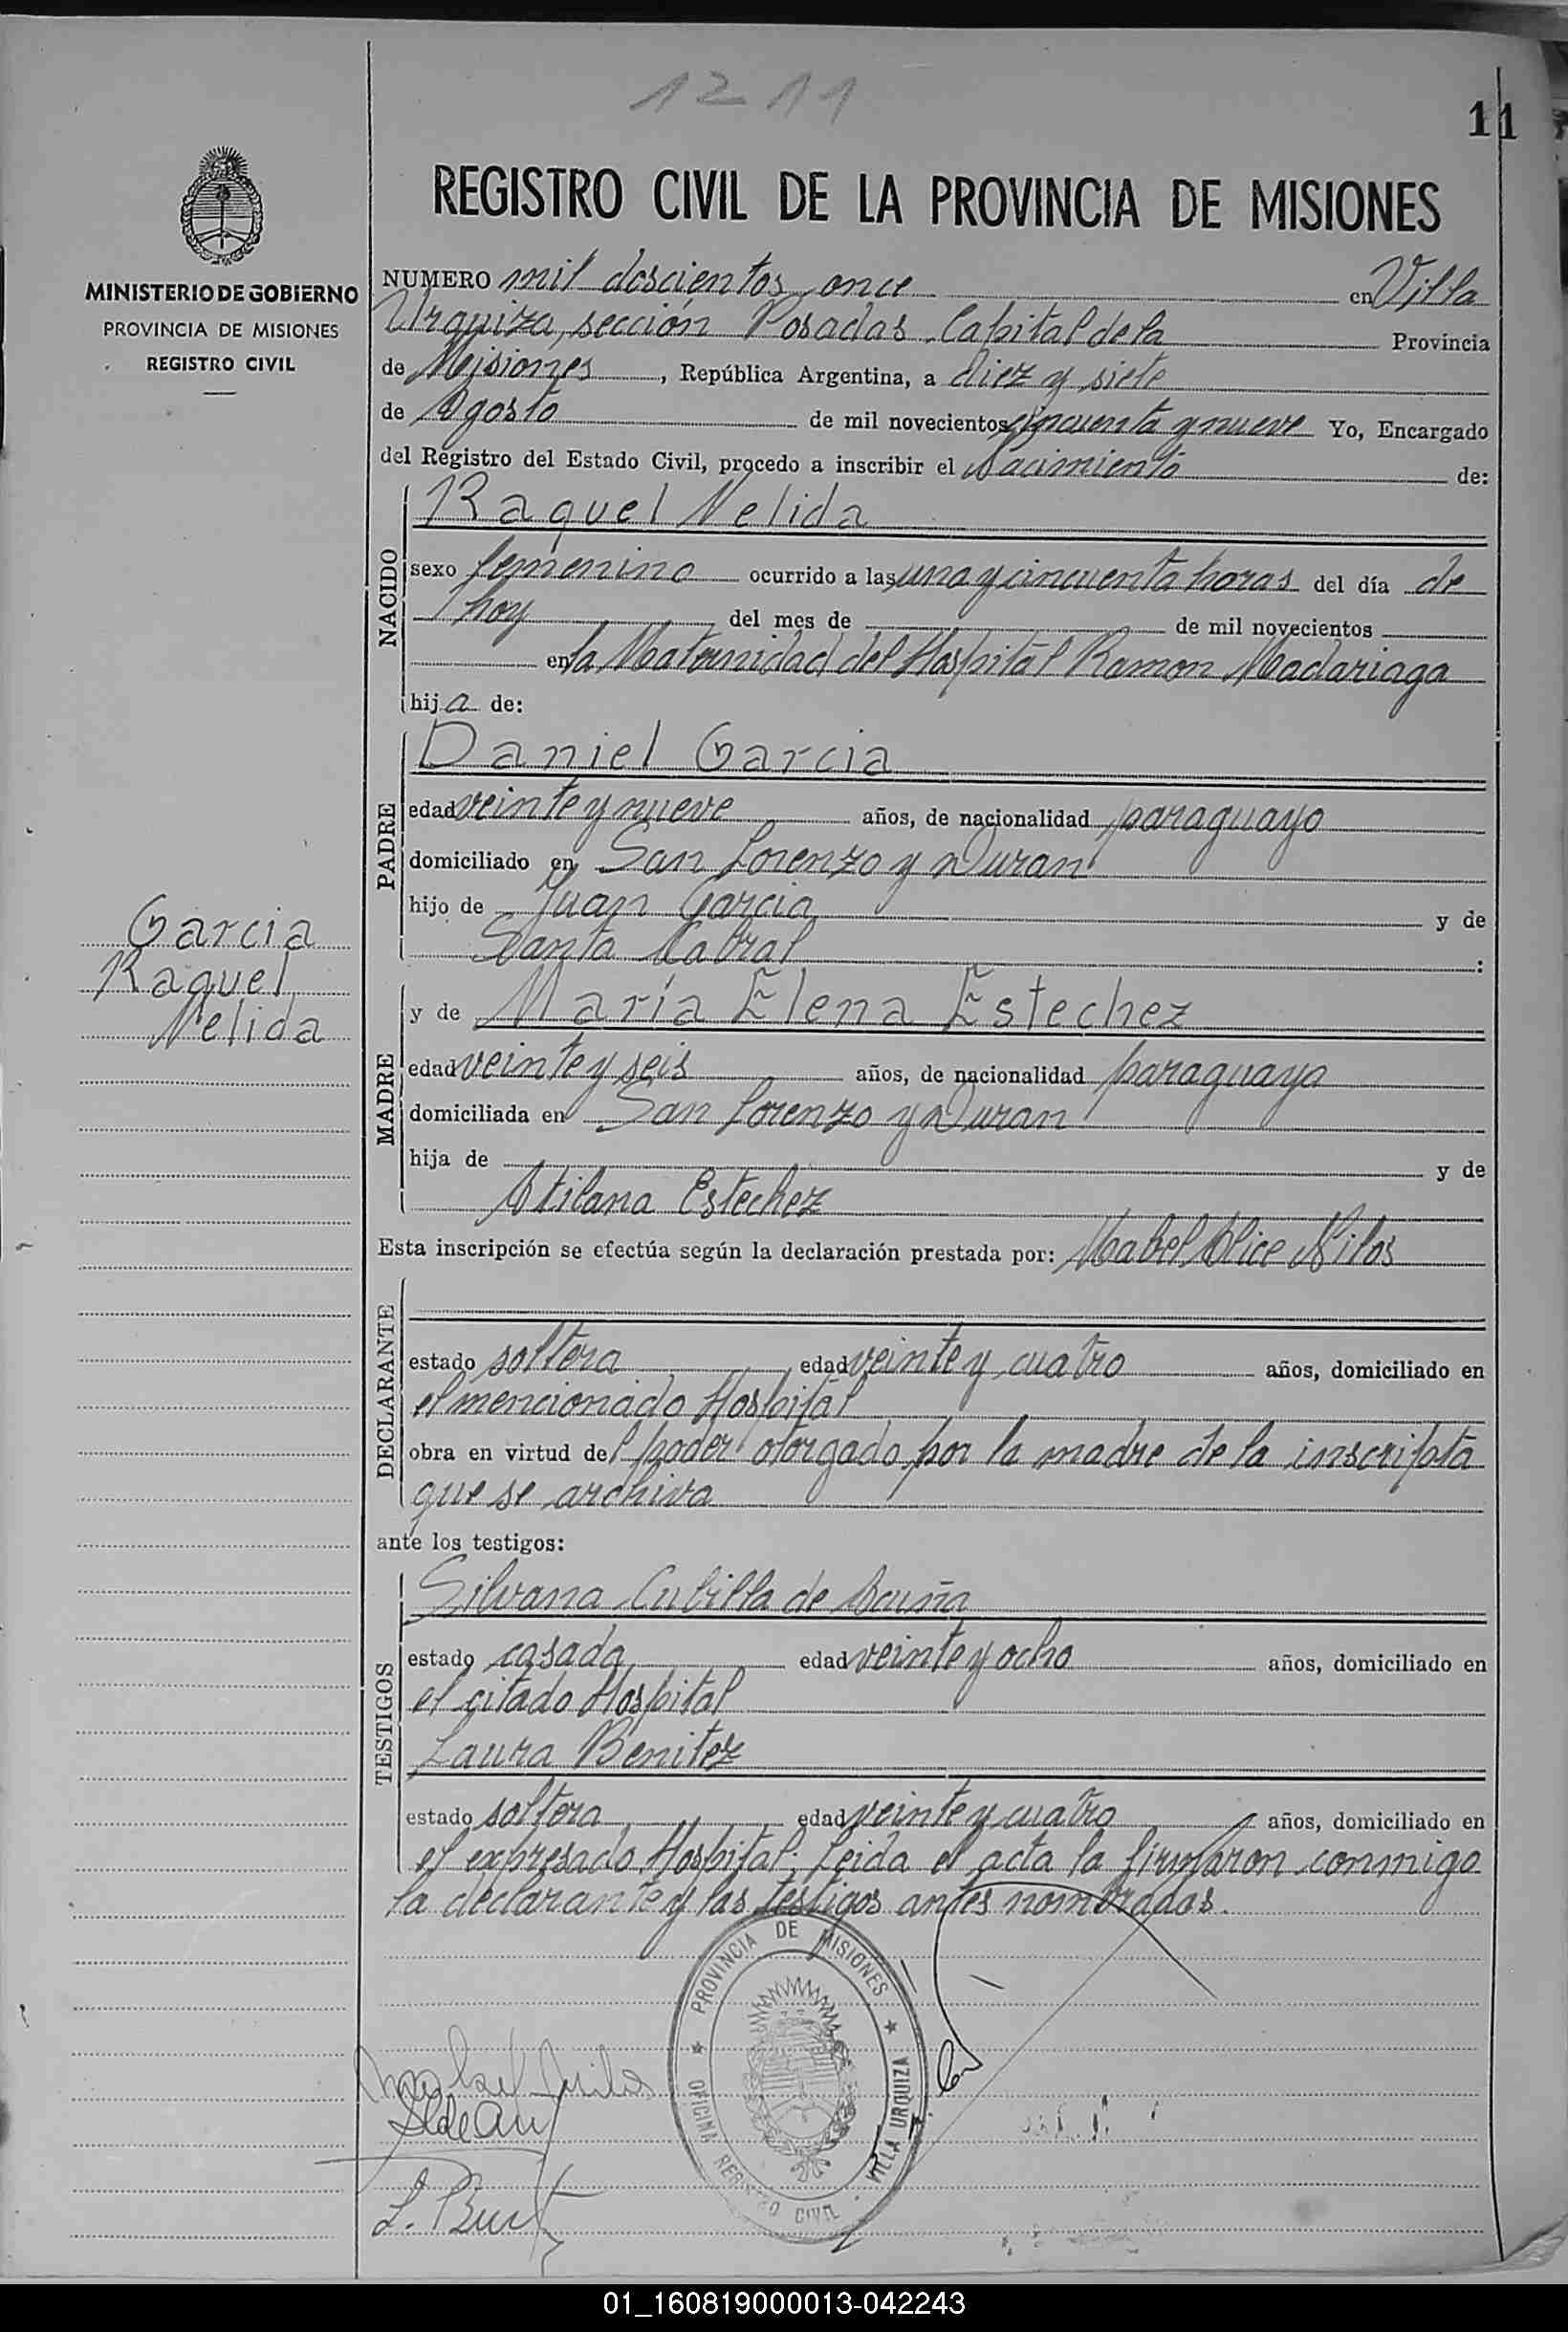 1211
11
REGISTRO CIVIL DE LA PROVINCIA DE MISIONES
MINISTERIO DE GOBIERNO
PROVINCIA DE MISIONES
REGISTRO CIVIL
NUMERO mil doscientos once en Villa
Urquiza, sección Posadas Capital de la Provincia
de Misiones, República Argentina, a diez y siete
de Agosto de mil novecientos cincuenta y nueve Yo, Encargado
del Registro del Estado Civil, procedo a inscribir el Nacimiento de:
NACIDO
Raquel Nelida
sexo femenino ocurrido a las una y cincuenta horas del día de
hoy del mes de de mil novecientos
en la Maternidad del Hospital Ramon Madariaga
hija de:
PADRE
Daniel Garcia
edad veinte y nueve años, de nacionalidad paraguayo
domiciliado en San Lorenzo y Duran
hijo de Juan Garcia y de
Santa Cabral :
Garcia
Raquel
Nelida
MADRE
y de María Elena Estechez
edad veinte y seis años, de nacionalidad paraguaya
domiciliada en San Lorenzo y Duran
hija de y de
Atilana Estechez
Esta inscripción se efectúa según la declaración prestada por: Mabel Alice
DECLARANTE
estado soltera edad veinte y cuatro años, domiciliado en
el mencionado Hospital
obra en virtud del poder otorgado por la madre de la inscripta
que se archiva
ante los testigos:
TESTIGOS
Silvana Cubilla de
estado casada edad veinte y ocho años, domiciliado en
el citado Hospital
Laura Benitez
estado soltera edad veinte y cuatro años, domiciliado en
el expresado Hospital; Leida el acta la firmaron conmigo
la declarante y las testigos antes nombradas.
PROVINCIA DE MISIONES
OFICINA REGISTRO CIVIL VILLA URQUIZA
01_160819000013-042243